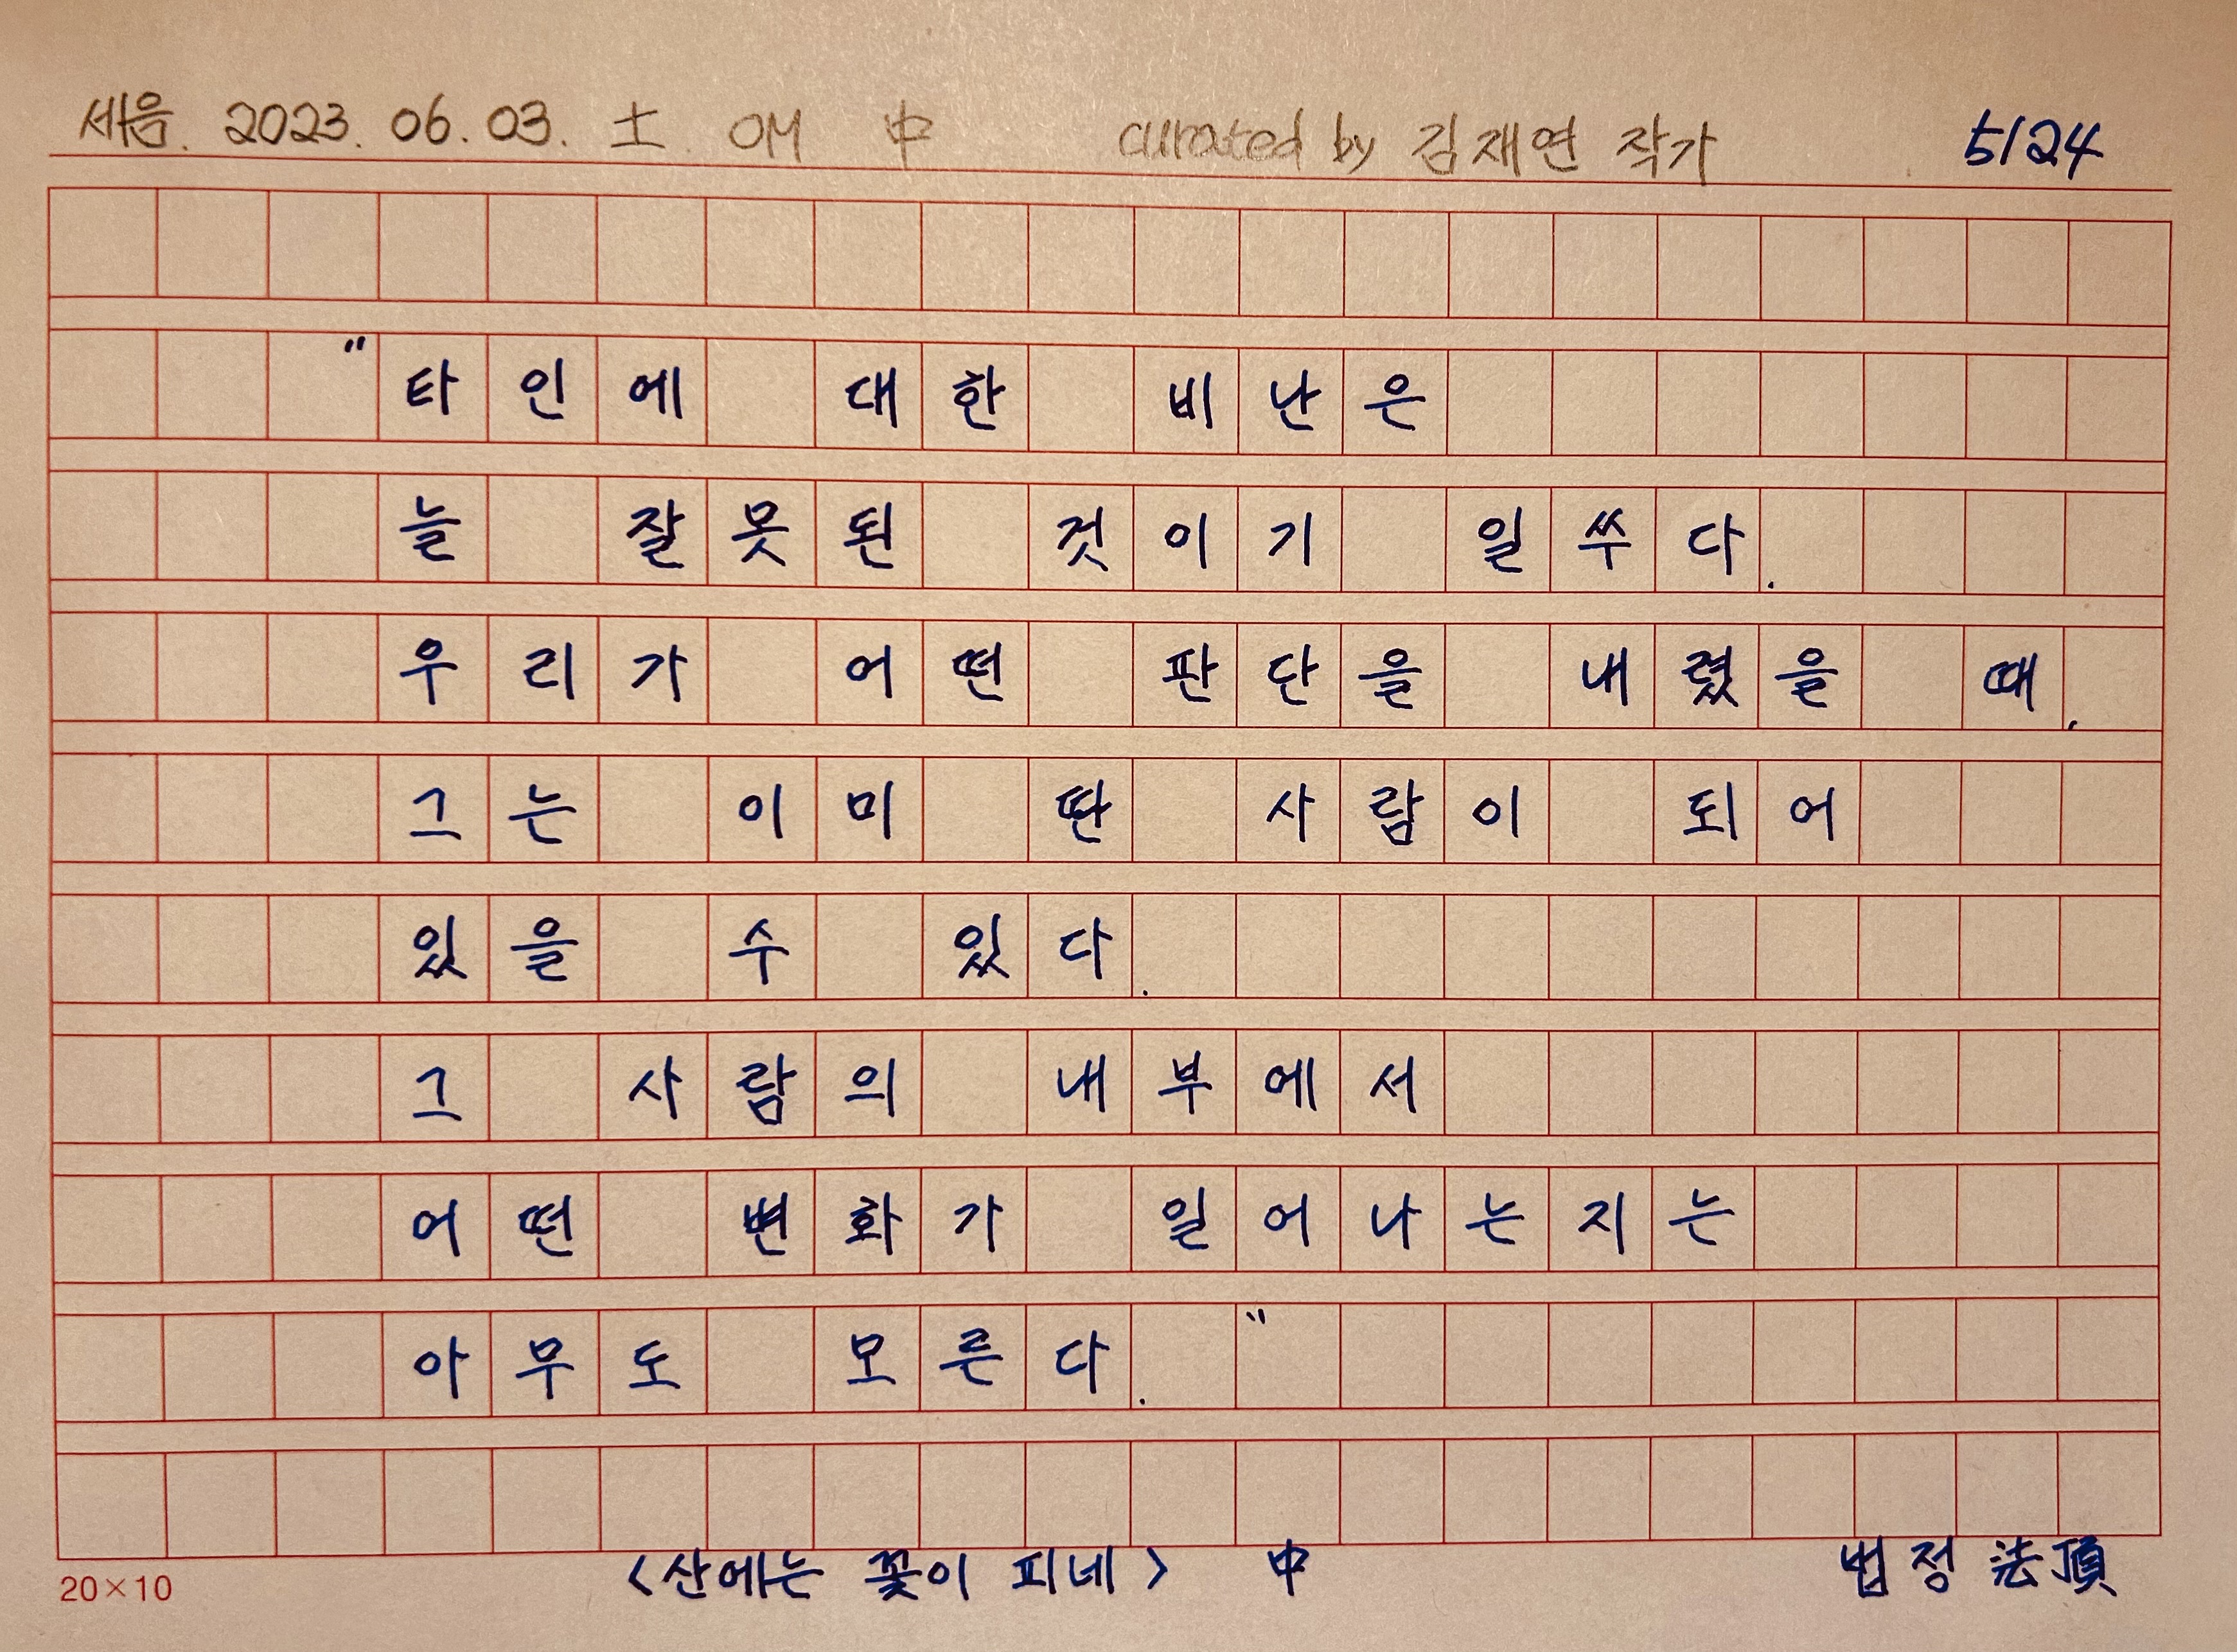 세음. 2023. 06. 03. 土 OM 中 curated by 김재연 작가 5124
"타인에 대한 비난은
늘 잘못된 것이기 일쑤다.
우리가 어떤 판단을 내렸을 때,
그는 이미 딴 사람이 되어
있을 수 있다.
그 사람의 내부에서
어떤 변화가 일어나는지는
아무도 모른다."
<산에는 꽃이 피네> 中 법정 法頂
20×10